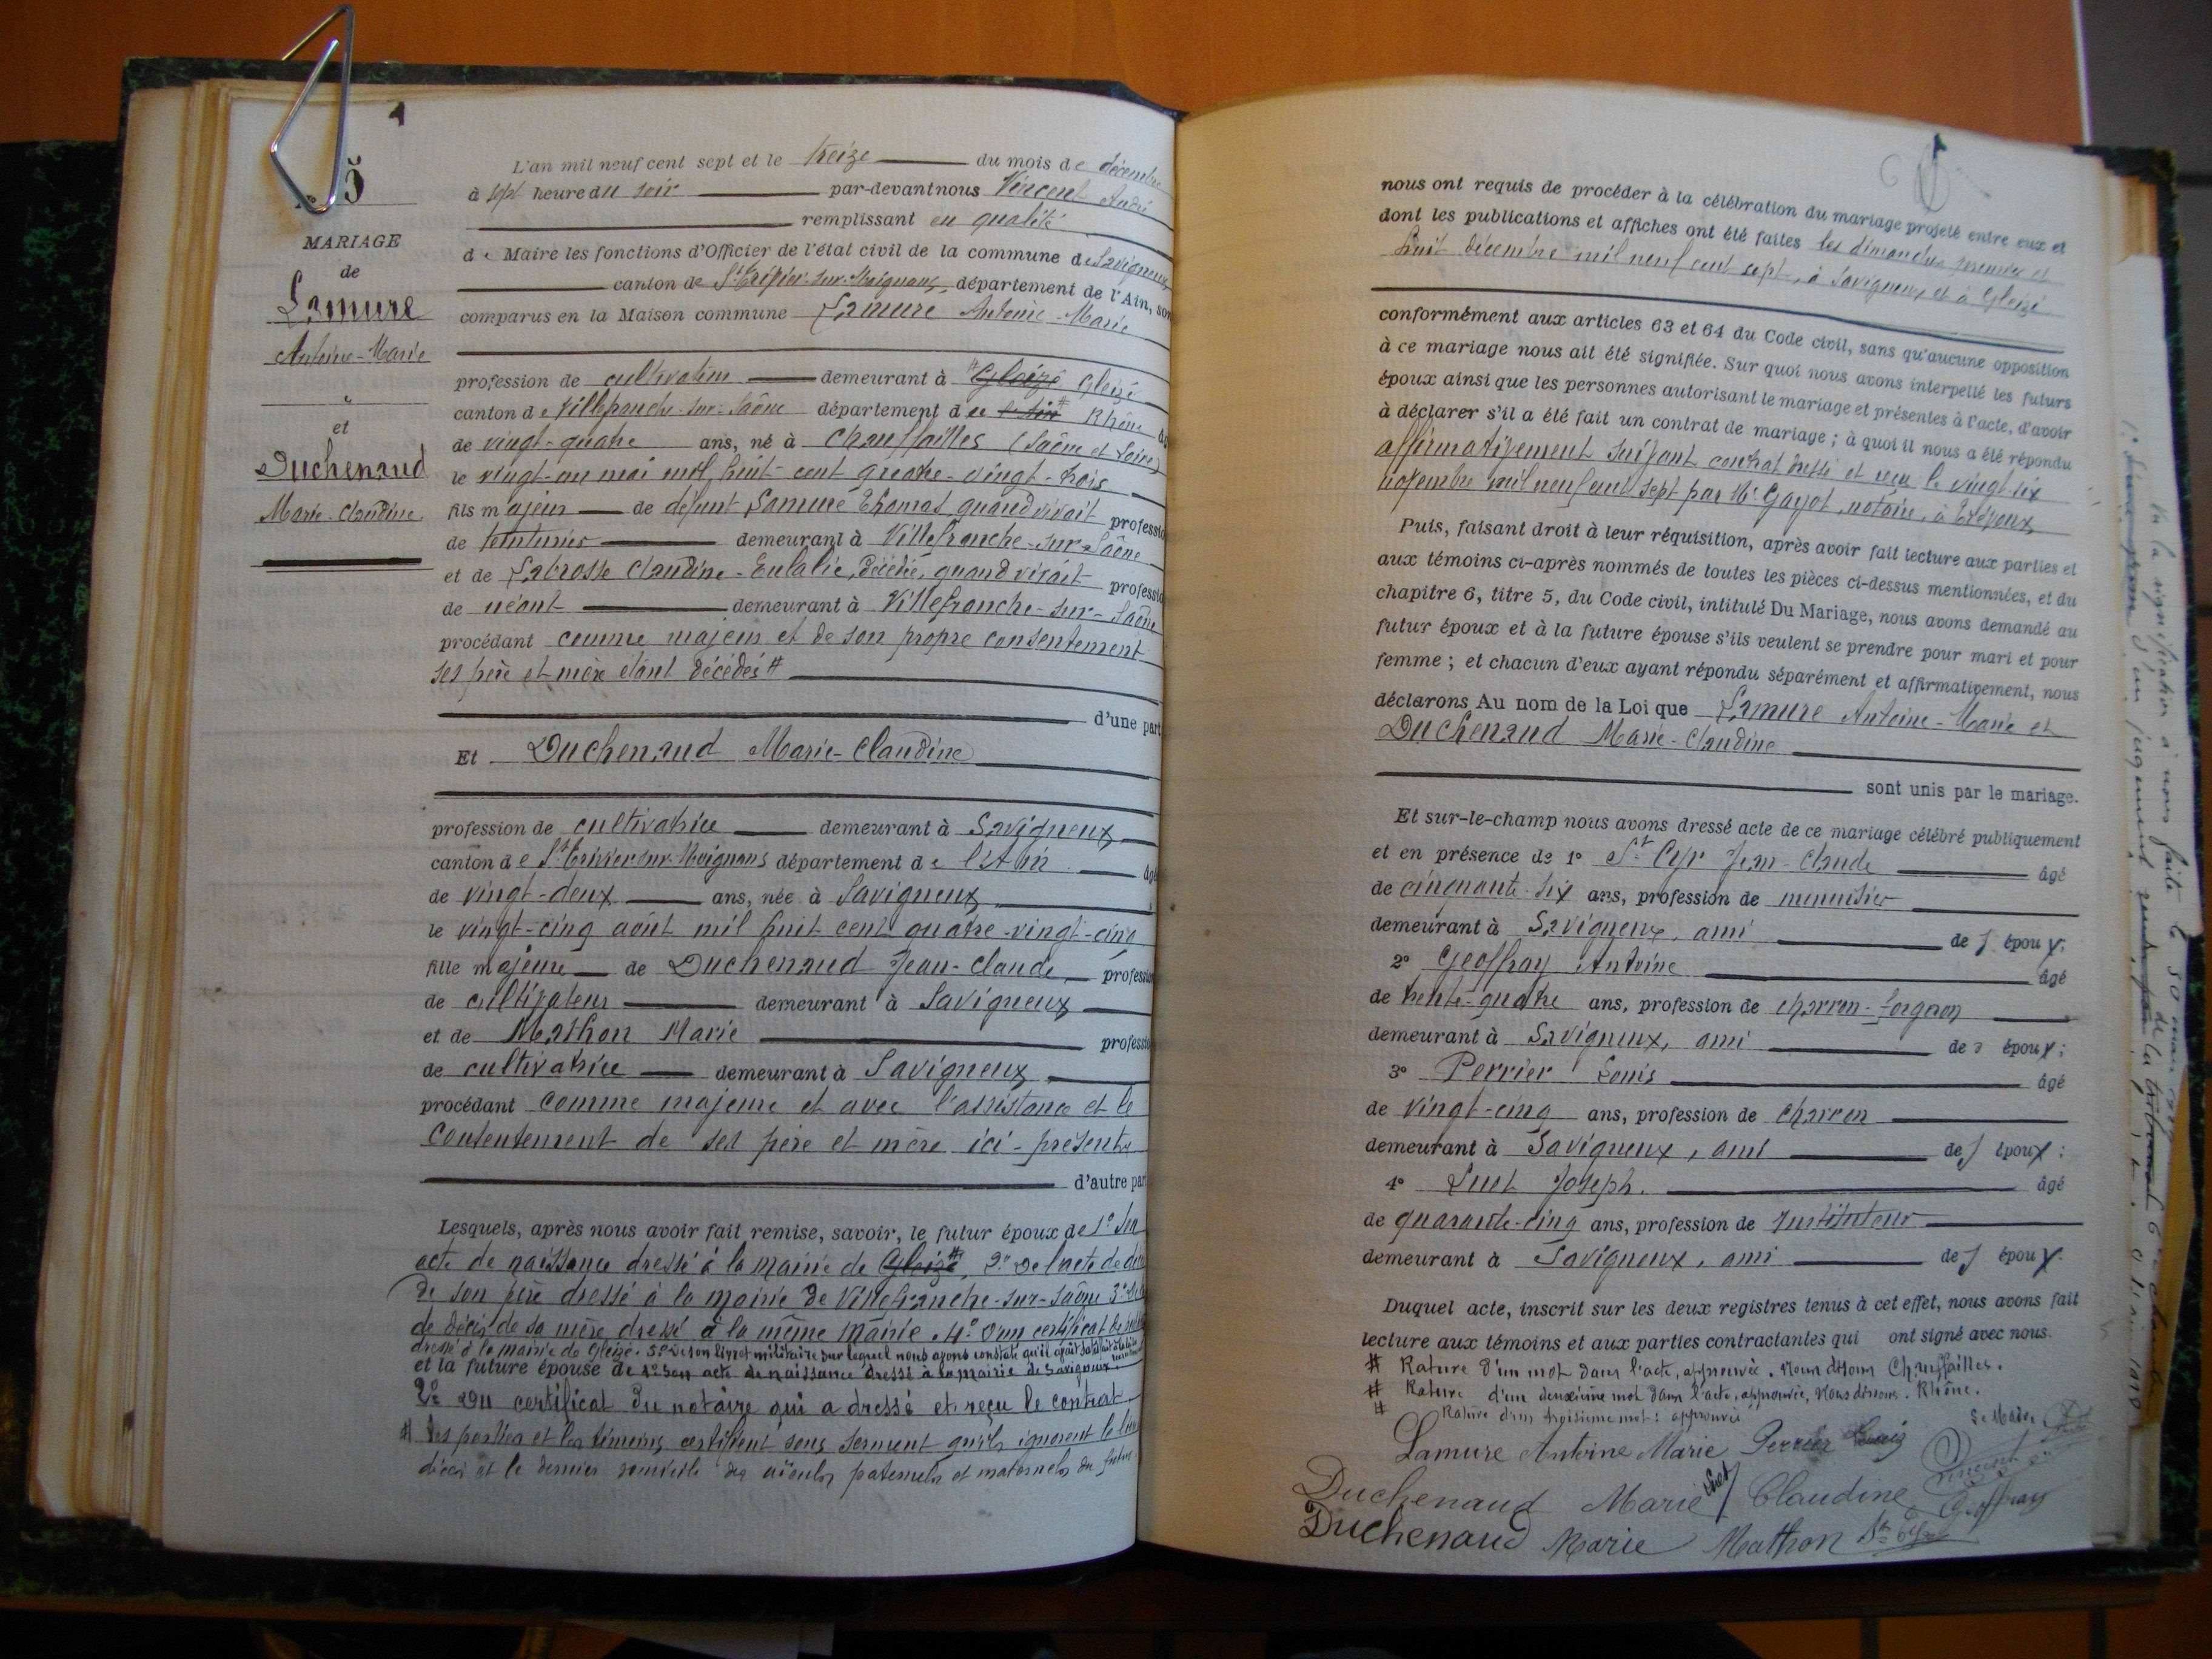 5
MARIAGE
de
Lamure
Antoine-Marie
et
Duchenaud
Marie-Claudine
L'an mil neuf cent sept et le treize du mois de décembre
à sept heure du soir par-devant nous Vincent André
remplissant en qualité
de Maire les fonctions d'Officier de l'état civil de la commune de Savigneux
canton de St Trivier-sur-Moignans, département de l'Ain, son
comparus en la Maison commune Lamure Antoine-Marie
profession de cultivateur demeurant à # Gleizé Gleizé
canton de Villefranche-sur-Saône département du Rhône
de vingt-quatre ans, né à Chauffailles (Saône et Loire)
le vingt-un mai mil huit-cent quatre-vingt-trois
fils majeur de défunt Lamure Thomas, quand vivait profession
de teinturier demeurant à Villefranche-sur-Saône
et de Labrosse Claudine-Eulalie, décédée, quand vivait profession
de néant demeurant à Villefranche-sur-Saône
procédant comme majeur et de son propre consentement
ses père et mère étant décédés #
d'une part
Et Duchenaud Marie-Claudine
profession de cultivatrice demeurant à Savigneux
canton de St Trivier-sur-Moignans département de l'Ain âgé
de vingt-deux ans, née à Savigneux
le vingt-cinq août mil huit cent quatre-vingt-cinq
fille majeure de Duchenaud Jean-Claude, profession
de cultivateur demeurant à Savigneux
et de Mathon Marie profession
de cultivatrice demeurant à Savigneux
procédant comme majeure et avec l'assistance et le
consentement de ses père et mère ici-présents
d'autre part
Lesquels, après nous avoir fait remise, savoir, le futur époux de 1° Son
acte de naissance dressé à la mairie de Gleizé #, 2° de l'acte de décès
de son père dressé à la mairie de Villefranche-sur-Saône 3° de
de décès de sa mère dressé à la même mairie. 4° d'un certificat de
dressé à la mairie de Gleizé. 5° de son livret militaire sur lequel nous avons constaté qu'il avait satisfait à la loi
et la future épouse de 1° son acte de naissance dressé à la mairie de Savigneux
2° du certificat du notaire qui a dressé et reçu le contrat
# Les parties et les témoins certifient sous serment qu'ils ignorent le lieu
décès et le dernier domicile des aïeuls paternels et maternels du futur
nous ont requis de procéder à la célébration du mariage projeté entre eux et
dont les publications et affiches ont été faites les dimanches premier et
huit décembre mil neuf cent sept, à Savigneux et à Gleizé
conformément aux articles 63 et 64 du Code civil, sans qu'aucune opposition
à ce mariage nous ait été signifiée. Sur quoi nous avons interpellé les futurs
époux ainsi que les personnes autorisant le mariage et présentes à l'acte, d'avoir
à déclarer s'il a été fait un contrat de mariage ; à quoi il nous a été répondu
affirmativement suivant contrat dressé et reçu le vingt six
novembre mil neuf cent sept par Me Gayot, notaire, à Trévoux
Puis, faisant droit à leur réquisition, après avoir fait lecture aux parties et
aux témoins ci-après nommés de toutes les pièces ci-dessus mentionnées, et du
chapitre 6, titre 5, du Code civil, intitulé Du Mariage, nous avons demandé au
futur époux et à la future épouse s'ils veulent se prendre pour mari et pour
femme ; et chacun d'eux ayant répondu séparément et affirmativement, nous
déclarons Au nom de la Loi que Lamure Antoine-Marie et
Duchenaud Marie-Claudine
sont unis par le mariage.
Et sur-le-champ nous avons dressé acte de ce mariage célébré publiquement
et en présence de 1° St Cyr Jean-Claude âgé
de cinquante-six ans, profession de menuisier
demeurant à Savigneux, ami des époux ;
2° Geoffray Antoine âgé
de trente-quatre ans, profession de charron-forgeron
demeurant à Savigneux, ami des époux ;
3° Perrier Louis âgé
de vingt-cinq ans, profession de charron
demeurant à Savigneux, ami des époux ;
4° Luet Joseph. âgé
de quarante-cinq ans, profession de Instituteur
demeurant à Savigneux, ami des époux.
Duquel acte, inscrit sur les deux registres tenus à cet effet, nous avons fait
lecture aux témoins et aux parties contractantes qui ont signé avec nous.
# Rature d'un mot dans l'acte, approuvée. Nous disons Chauffailles.
# Rature d'un deuxième mot dans l'acte, approuvée, Nous disons. Rhône.
# Rature d'un troisième mot : approuvée
Le Maire
Lamure Antoine Marie Perrier Louis
Vincent
Duchenaud Marie Claudine Geoffray
Luet
Duchenaud Marie Mathon St Cyr
Vu la signification à nous faite le 30 mai
d'un jugement rendu par le tribunal